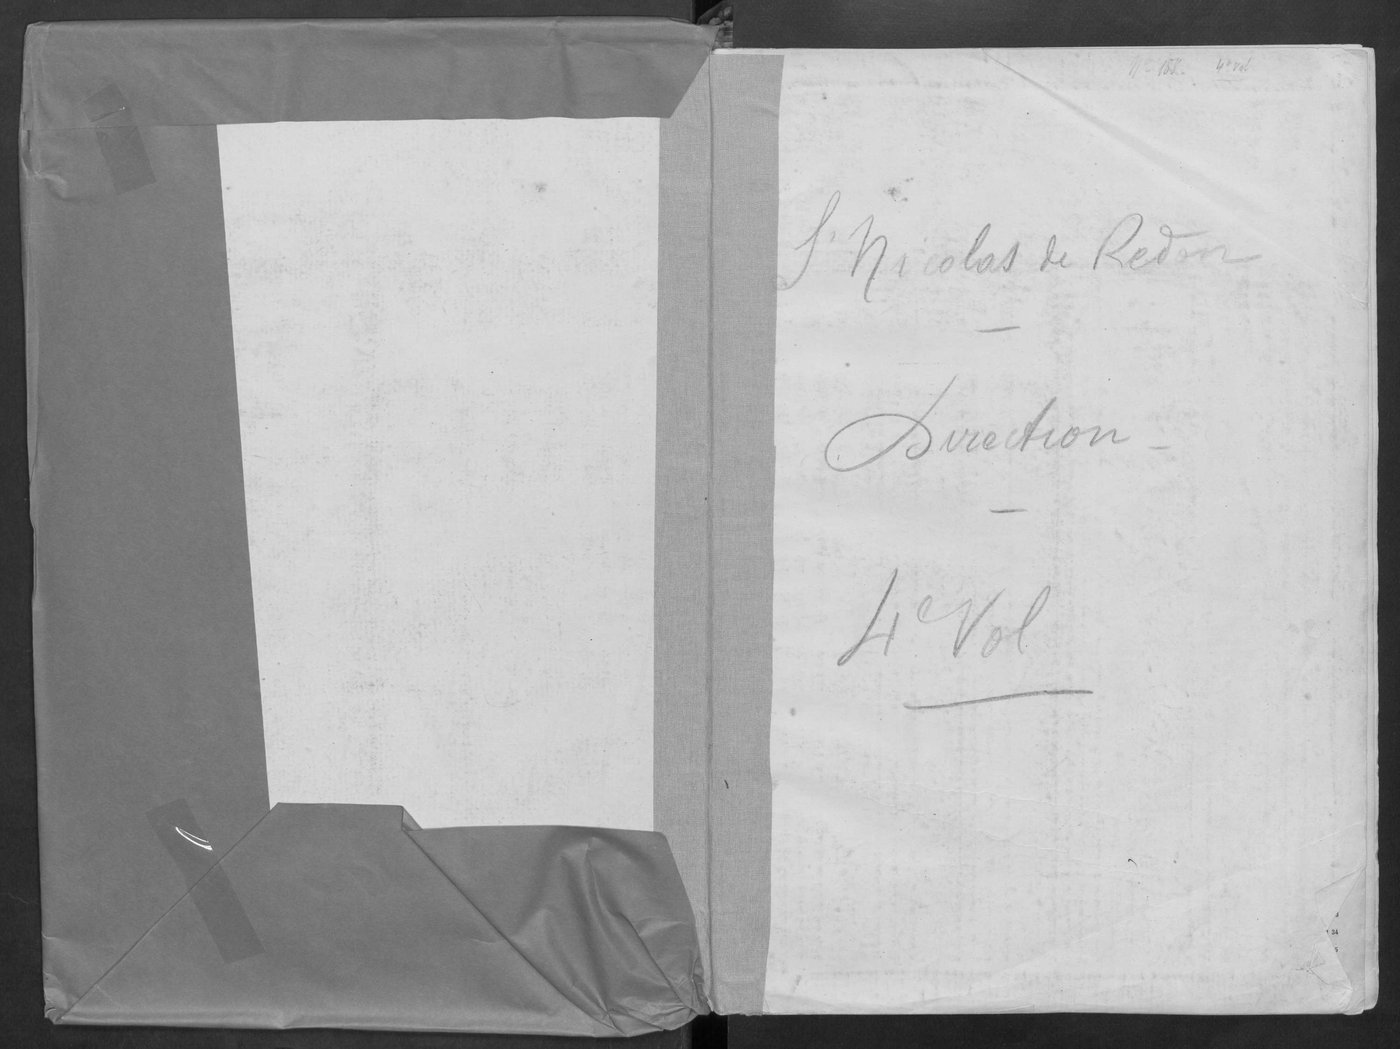 4e Vol
St Nicolas de Redon
Direction
4e Vol
34
5